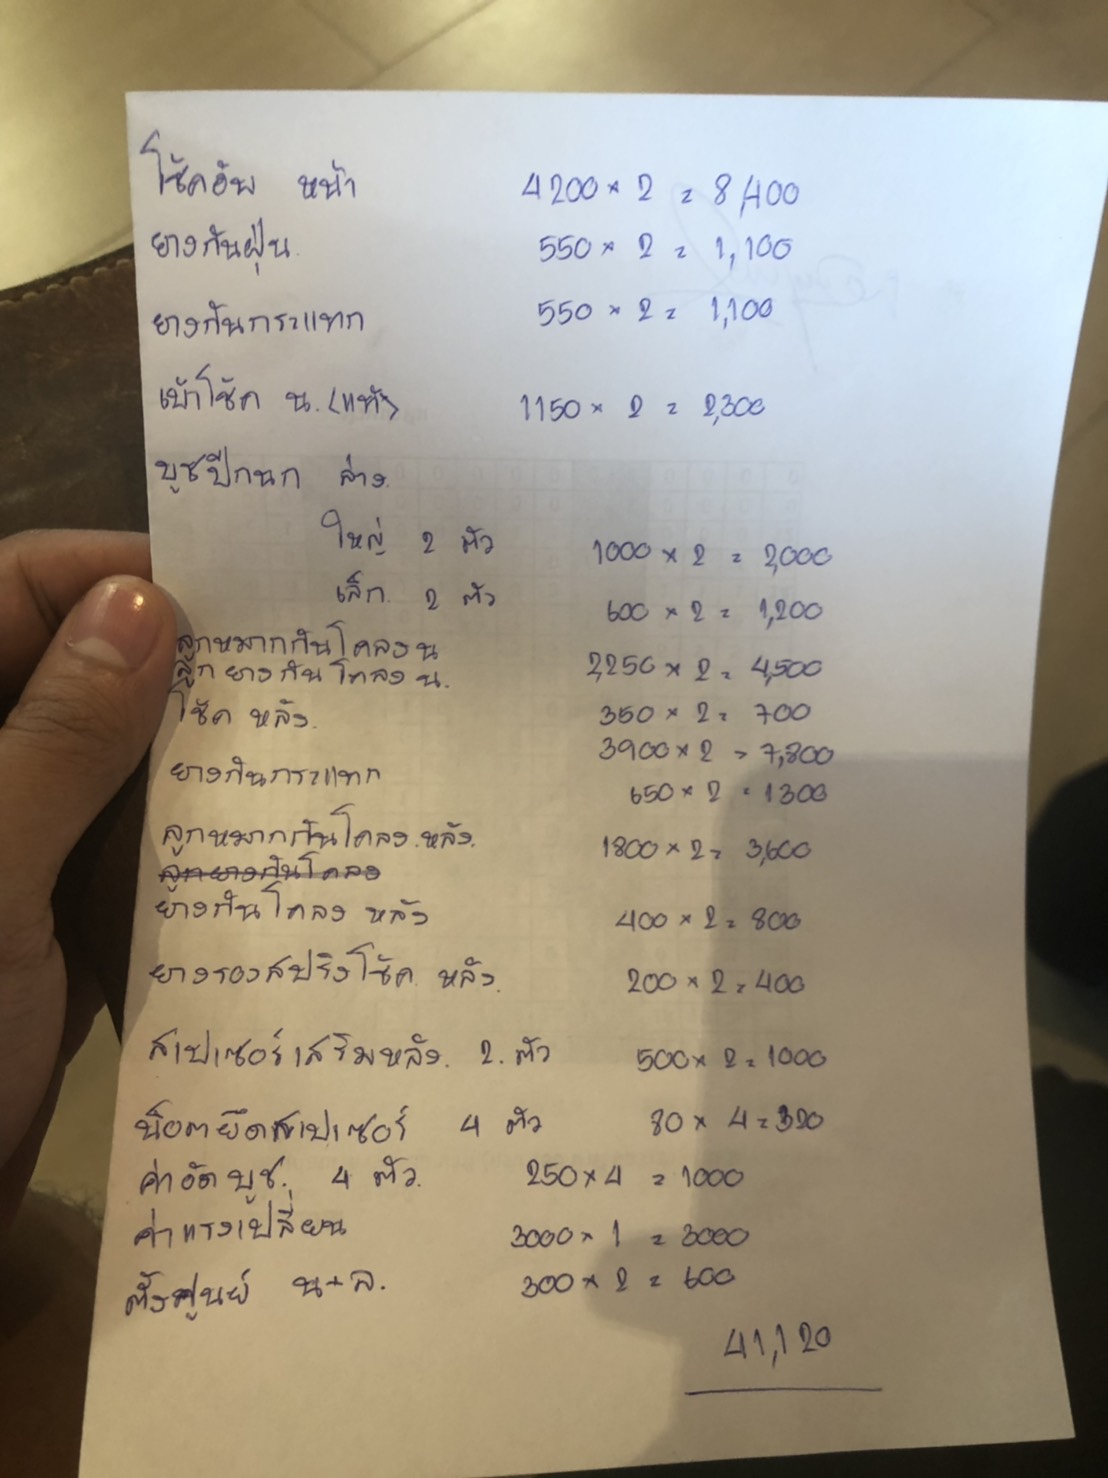 โช้คอัพ หน้า 4200 × 2 = 8,400
ยางกันฝุ่น. 550 × 2 = 1,100
ยางกันกระแทก 550 × 2 = 1,100
เบ้าโช้ค น. (แท้) 1150 × 2 = 2,300
บูชปีกนก ล่าง.
ใหญ่ 2 ตัว 1000 × 2 = 2,000
เล็ก. 2 ตัว 600 × 2 = 1,200
ลูกหมากกันโคลง น 2,250 × 2 = 4,500
ลูกยางกันโคลง น. 350 × 2 = 700
โช้ค หลัง. 3900 × 2 = 7,800
ยางกันกระแทก 650 × 2 = 1300
ลูกหมากกันโคลง.หลัง. 1800 × 2 = 3,600
ลูกยางกันโคลง
ยางกันโคลง หลัง 400 × 2 = 800
ยางรองสปริงโช้ค หลัง. 200 × 2 = 400
สเปเซอร์เสริมหลัง. 2. ตัว 500 × 2 = 1000
น็อตยึดสเปเซอร์ 4 ตัว 80 × 4 = 320
ค่าอัดบูช. 4 ตัว. 250 × 4 = 1000
ค่าแรงเปลี่ยน 3000 × 1 = 3000
ตั้งศูนย์ น+ล. 300 × 2 = 600
41,120